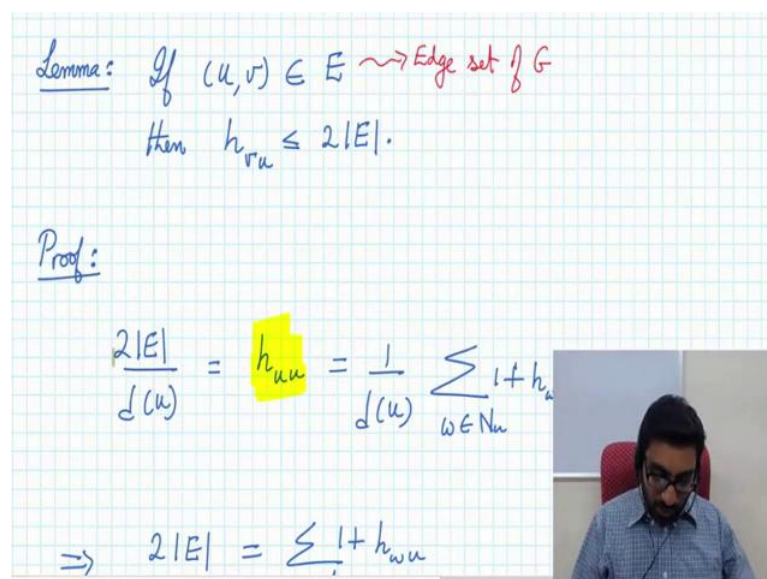 Lemma: If (u,v) ∈ E ⇝ Edge set of G
then h_{vu} ≤ 2|E|.
Proof:
2|E| / d(u) = h_{uu} = 1 / d(u) ∑_{w ∈ N_u} 1 + h_w
⇒ 2|E| = ∑ 1 + h_{wu}